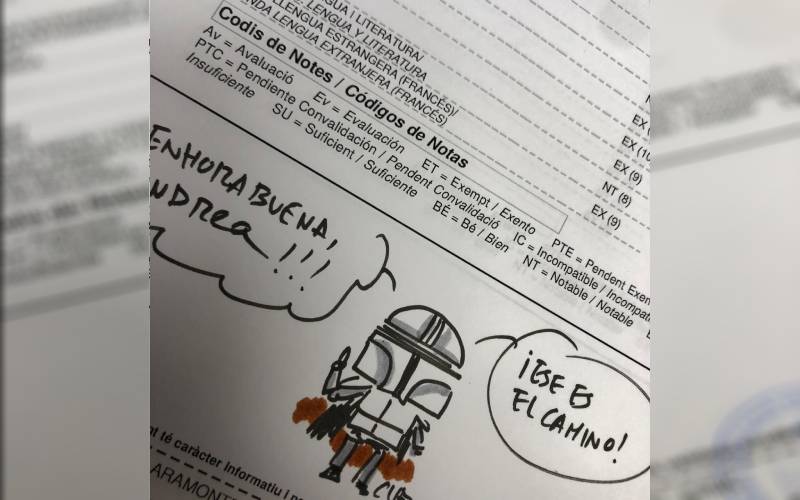 GUA I LITERATURA/
LENGUA Y LITERATURA
LLENGUA ESTRANGERA (FRANCÉS)/
NDA LENGUA EXTRANJERA (FRANCÉS)
EX (10
EX (9)
NT (8)
EX (9)
Codis de Notes / Códigos de Notas
Av = Avaluació Ev = Evaluación ET = Exempt / Exento PTE = Pendent Exem
PTC = Pendiente Convalidación / Pendent Convalidació IC = Incompatible / Incompat
Insuficiente SU = Suficient / Suficiente BÉ = Bé / Bien NT = Notable / Notable
ENHORABUENA,
ANDREA!!!
¡ESE ES
EL CAMINO!
nt té caràcter informatiu i p
ARAMONT